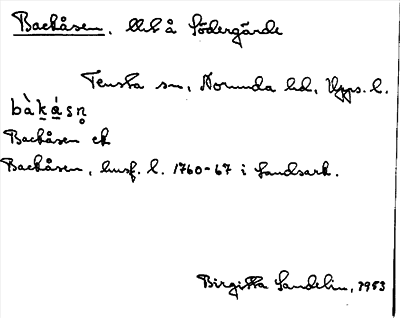 Backåsen. lht å Södergärde
Tensta sn, Norunda hd, Upps. l.
bàkåsn̥
Backåsen ek
Backåsen, husf. l. 1760-67 i landsark.
Birgitta Sandelin, 1953